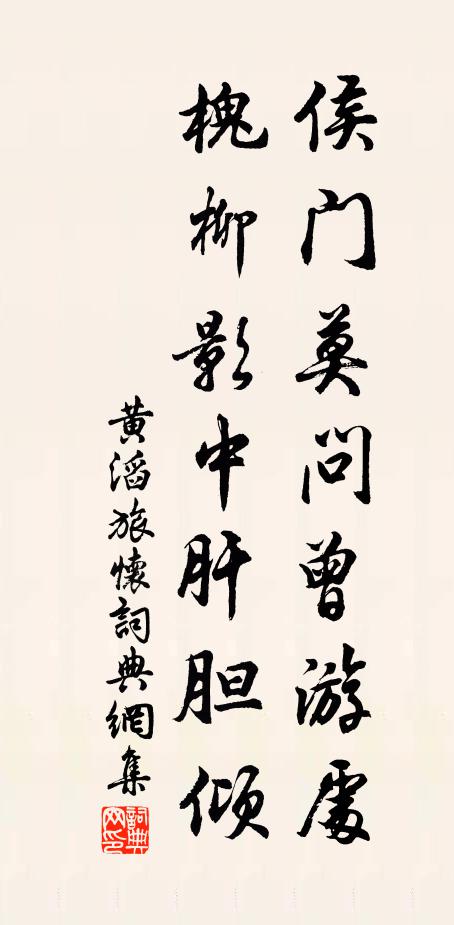 侯门莫问曾游處
槐柳影中肝胆倾
黄滔旅懷詞典網集
詞典网印